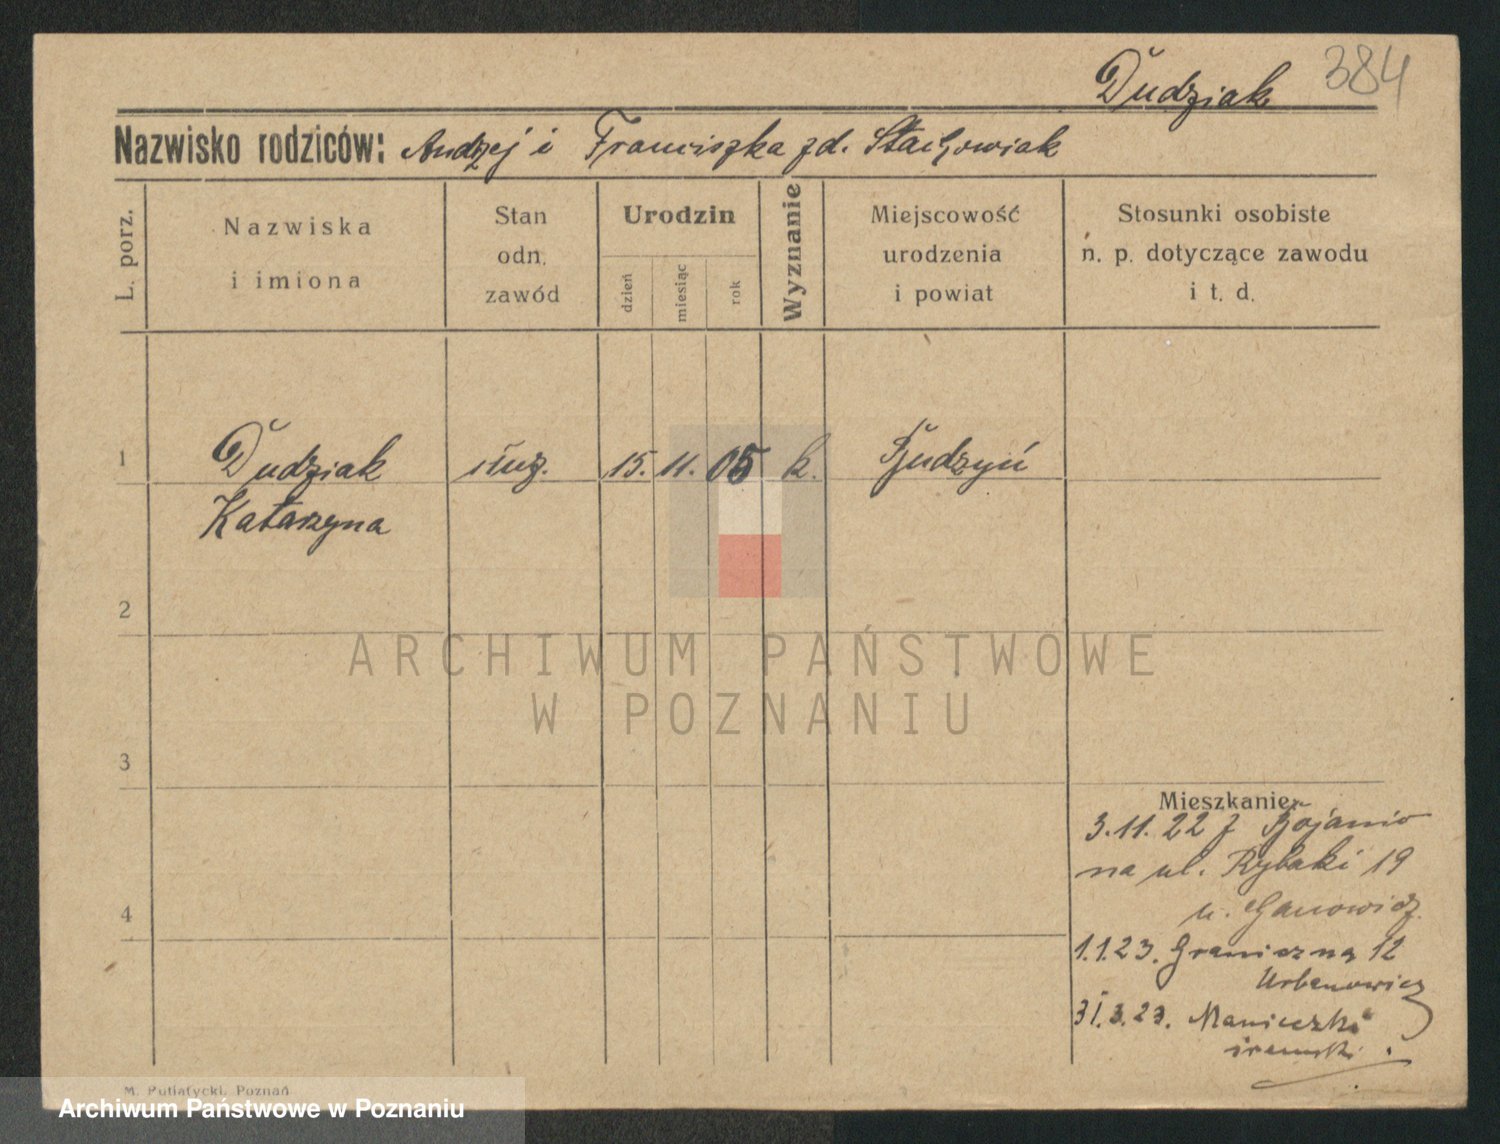 Dudziak 384
Nazwisko rodziców: Andrzej i Franciszka zd. Stachowiak
L. porz.
Nazwiska
i imiona
Stan
odn.
zawód
Urodzin
dzień
miesiąc
rok
Wyznanie
Miejscowość
urodzenia
i powiat
Stosunki osobiste
n. p. dotyczące zawodu
i t. d.
1 Dudziak służ. 15. 11. 05 k. Budzyń
Katarzyna
2
ARCHIWUM PAŃSTWOWE
W POZNANIU
3
Mieszkanie
3.11.22 z Bojanio
na ul. Rybaki 19
u. Ganowicz
4
1.1.23. Graniczna 12
Urbanowicz
31.3.23. Manieczki
śremski
M. Putiatycki, Poznań
Archiwum Państwowe w Poznaniu